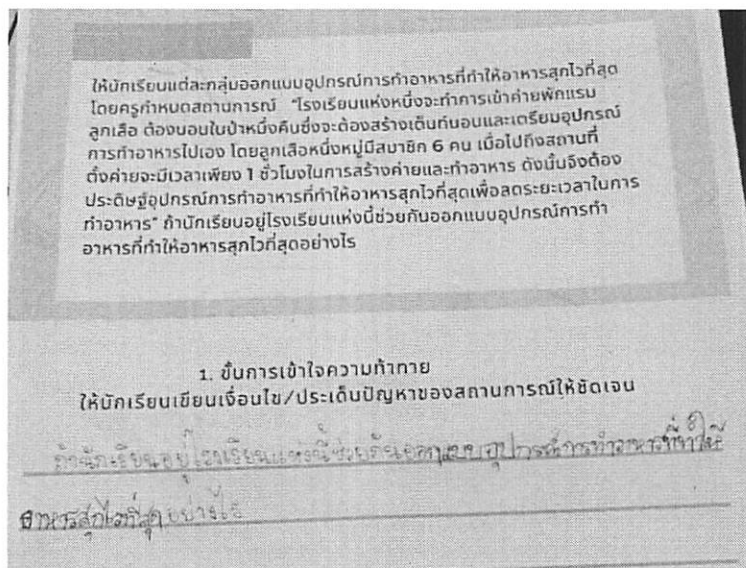 ให้นักเรียนแต่ละกลุ่มออกแบบอุปกรณ์การทำอาหารที่ทำให้อาหารสุกไวที่สุด
โดยครูกำหนดสถานการณ์ "โรงเรียนแห่งหนึ่งจะทำการเข้าค่ายพักแรม
ลูกเสือ ต้องนอนในป่าหนึ่งคืนซึ่งจะต้องสร้างเต็นท์นอนและเตรียมอุปกรณ์
การทำอาหารไปเอง โดยลูกเสือหนึ่งหมู่มีสมาชิก 6 คน เมื่อไปถึงสถานที่
ตั้งค่ายจะมีเวลาเพียง 1 ชั่วโมงในการสร้างค่ายและทำอาหาร ดังนั้นจึงต้อง
ประดิษฐ์อุปกรณ์การทำอาหารที่ทำให้อาหารสุกไวที่สุดเพื่อลดระยะเวลาในการ
ทำอาหาร" ถ้านักเรียนอยู่โรงเรียนแห่งนี้ช่วยกันออกแบบอุปกรณ์การทำ
อาหารที่ทำให้อาหารสุกไวที่สุดอย่างไร
1. ขั้นการเข้าใจความท้าทาย
ให้นักเรียนเขียนเงื่อนไข/ประเด็นปัญหาของสถานการณ์ให้ชัดเจน
ถ้านักเรียนอยู่โรงเรียนแห่งนี้ช่วยกันออกแบบอุปกรณ์การทำอาหารที่ทำให้
อาหารสุกไวที่สุดอย่างไร